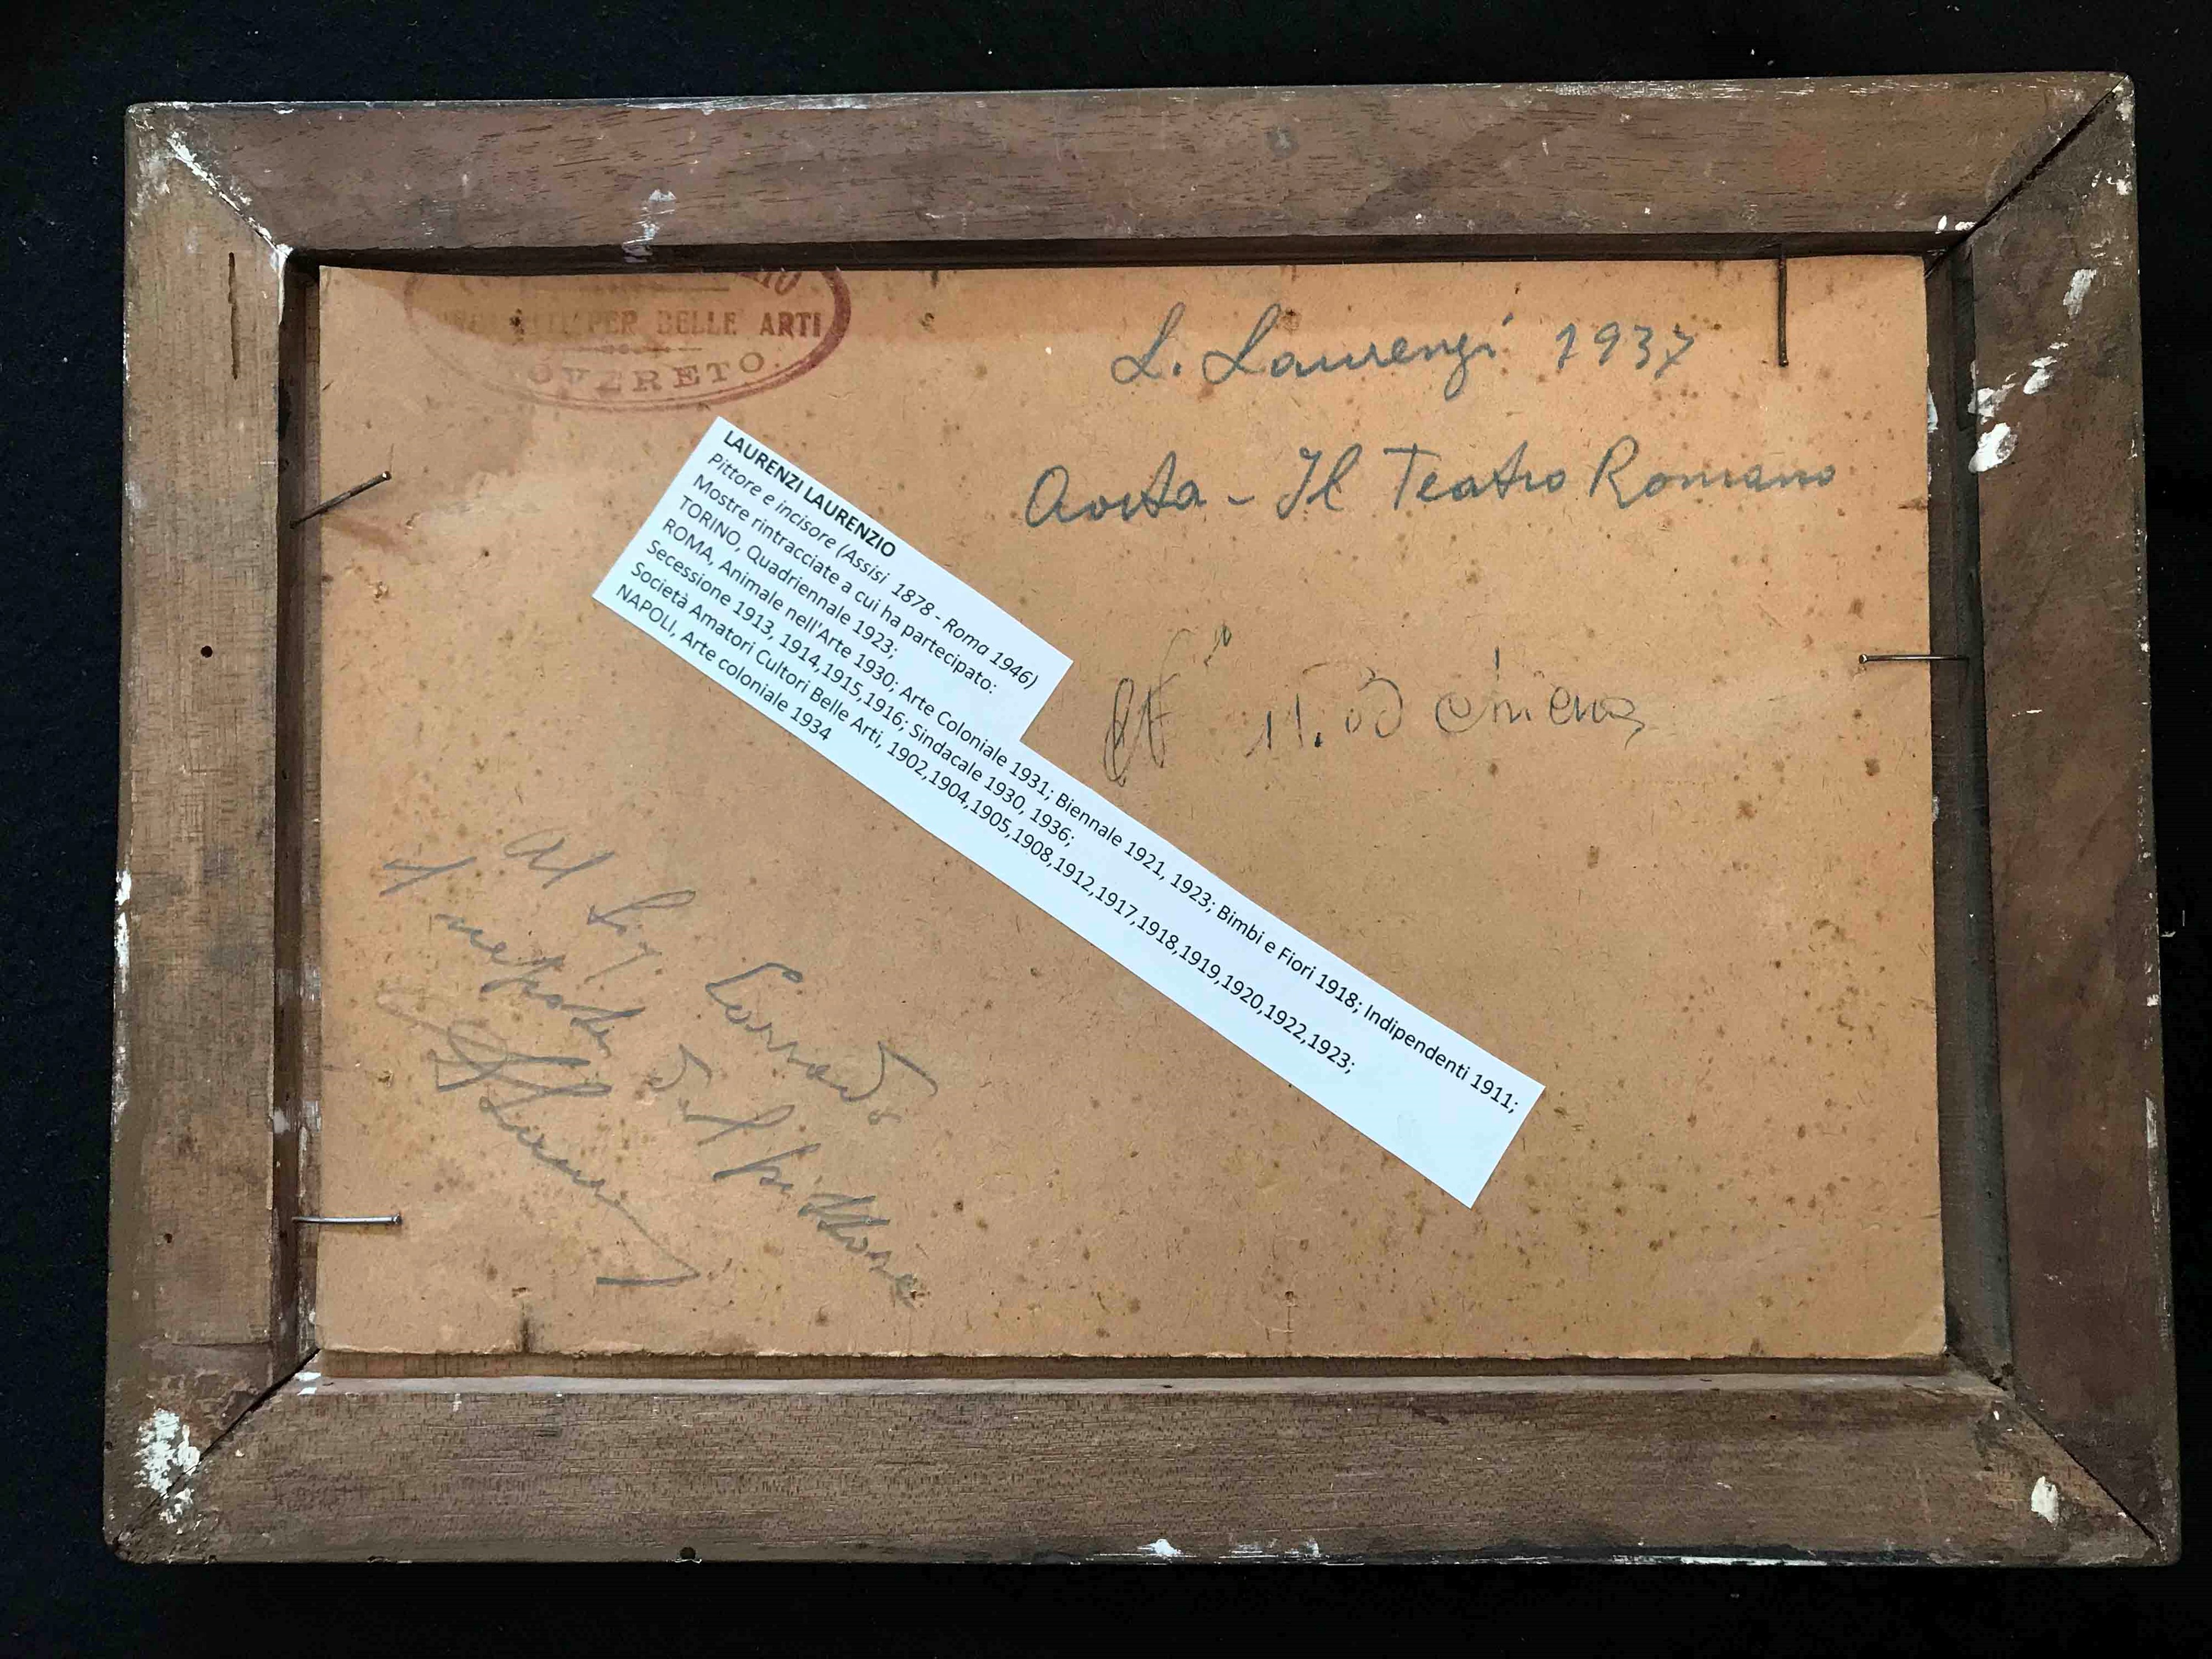 PER BELLE ARTI
OVERETO.
L. Laurenzi 1937
Aosta - Il Teatro Romano
LAURENZI LAURENZIO
Pittore e incisore (Assisi 1878 - Roma 1946)
Mostre rintracciate a cui ha partecipato:
TORINO, Quadriennale 1923;
ROMA, Animale nell'Arte 1930; Arte Coloniale 1931; Biennale 1921, 1923; Bimbi e Fiori 1918; Indipendenti 1911;
Secessione 1913, 1914,1915,1916; Sindacale 1930, 1936;
Società Amatori Cultori Belle Arti, 1902,1904,1905,1908,1912,1917,1918,1919,1920,1922,1923;
NAPOLI, Arte coloniale 1934
Al Sig. Corrado
il nepote del pittore